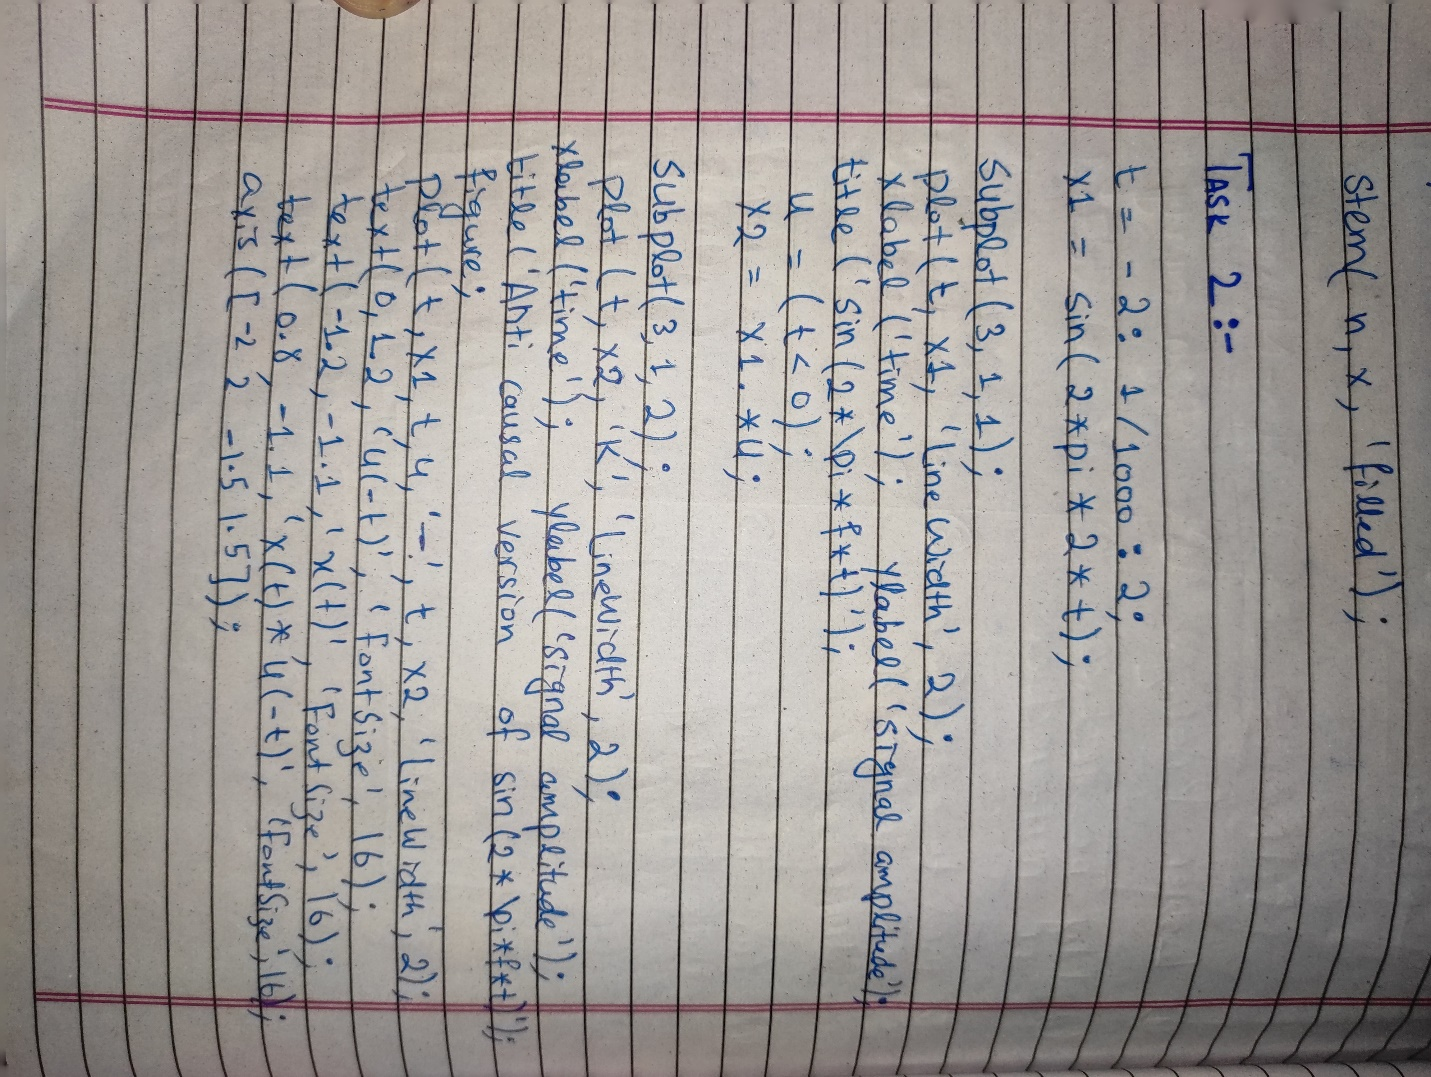 stem(n,x,'filled');
TASK 2:-
t = -2: 1/1000 : 2;
x1 = sin(2*pi*2*t);
Subplot(3,1,1);
plot(t, x1, 'line width', 2);
xlabel('time'); ylabel('signal amplitude');
title('sin(2*\pi*f*t)');
u = (t<0);
x2 = x1.*u;
Subplot(3,1,2);
plot(t,x2,'K','linewidth',2);
xlabel('time'); ylabel('signal amplitude');
title('Anti causal version of sin(2*\pi*f*t)');
figure;
plot(t,x1,t,u,'--',t,x2,'linewidth',2);
text(0,1.2,'u(-t)','fontsize',16);
text(-1.2,-1.1,'x(t)','Fontsize',16);
text(0.8,-1.1,'x(t)*u(-t)','fontsize',16);
axis([-2 2 -1.5 1.5]);